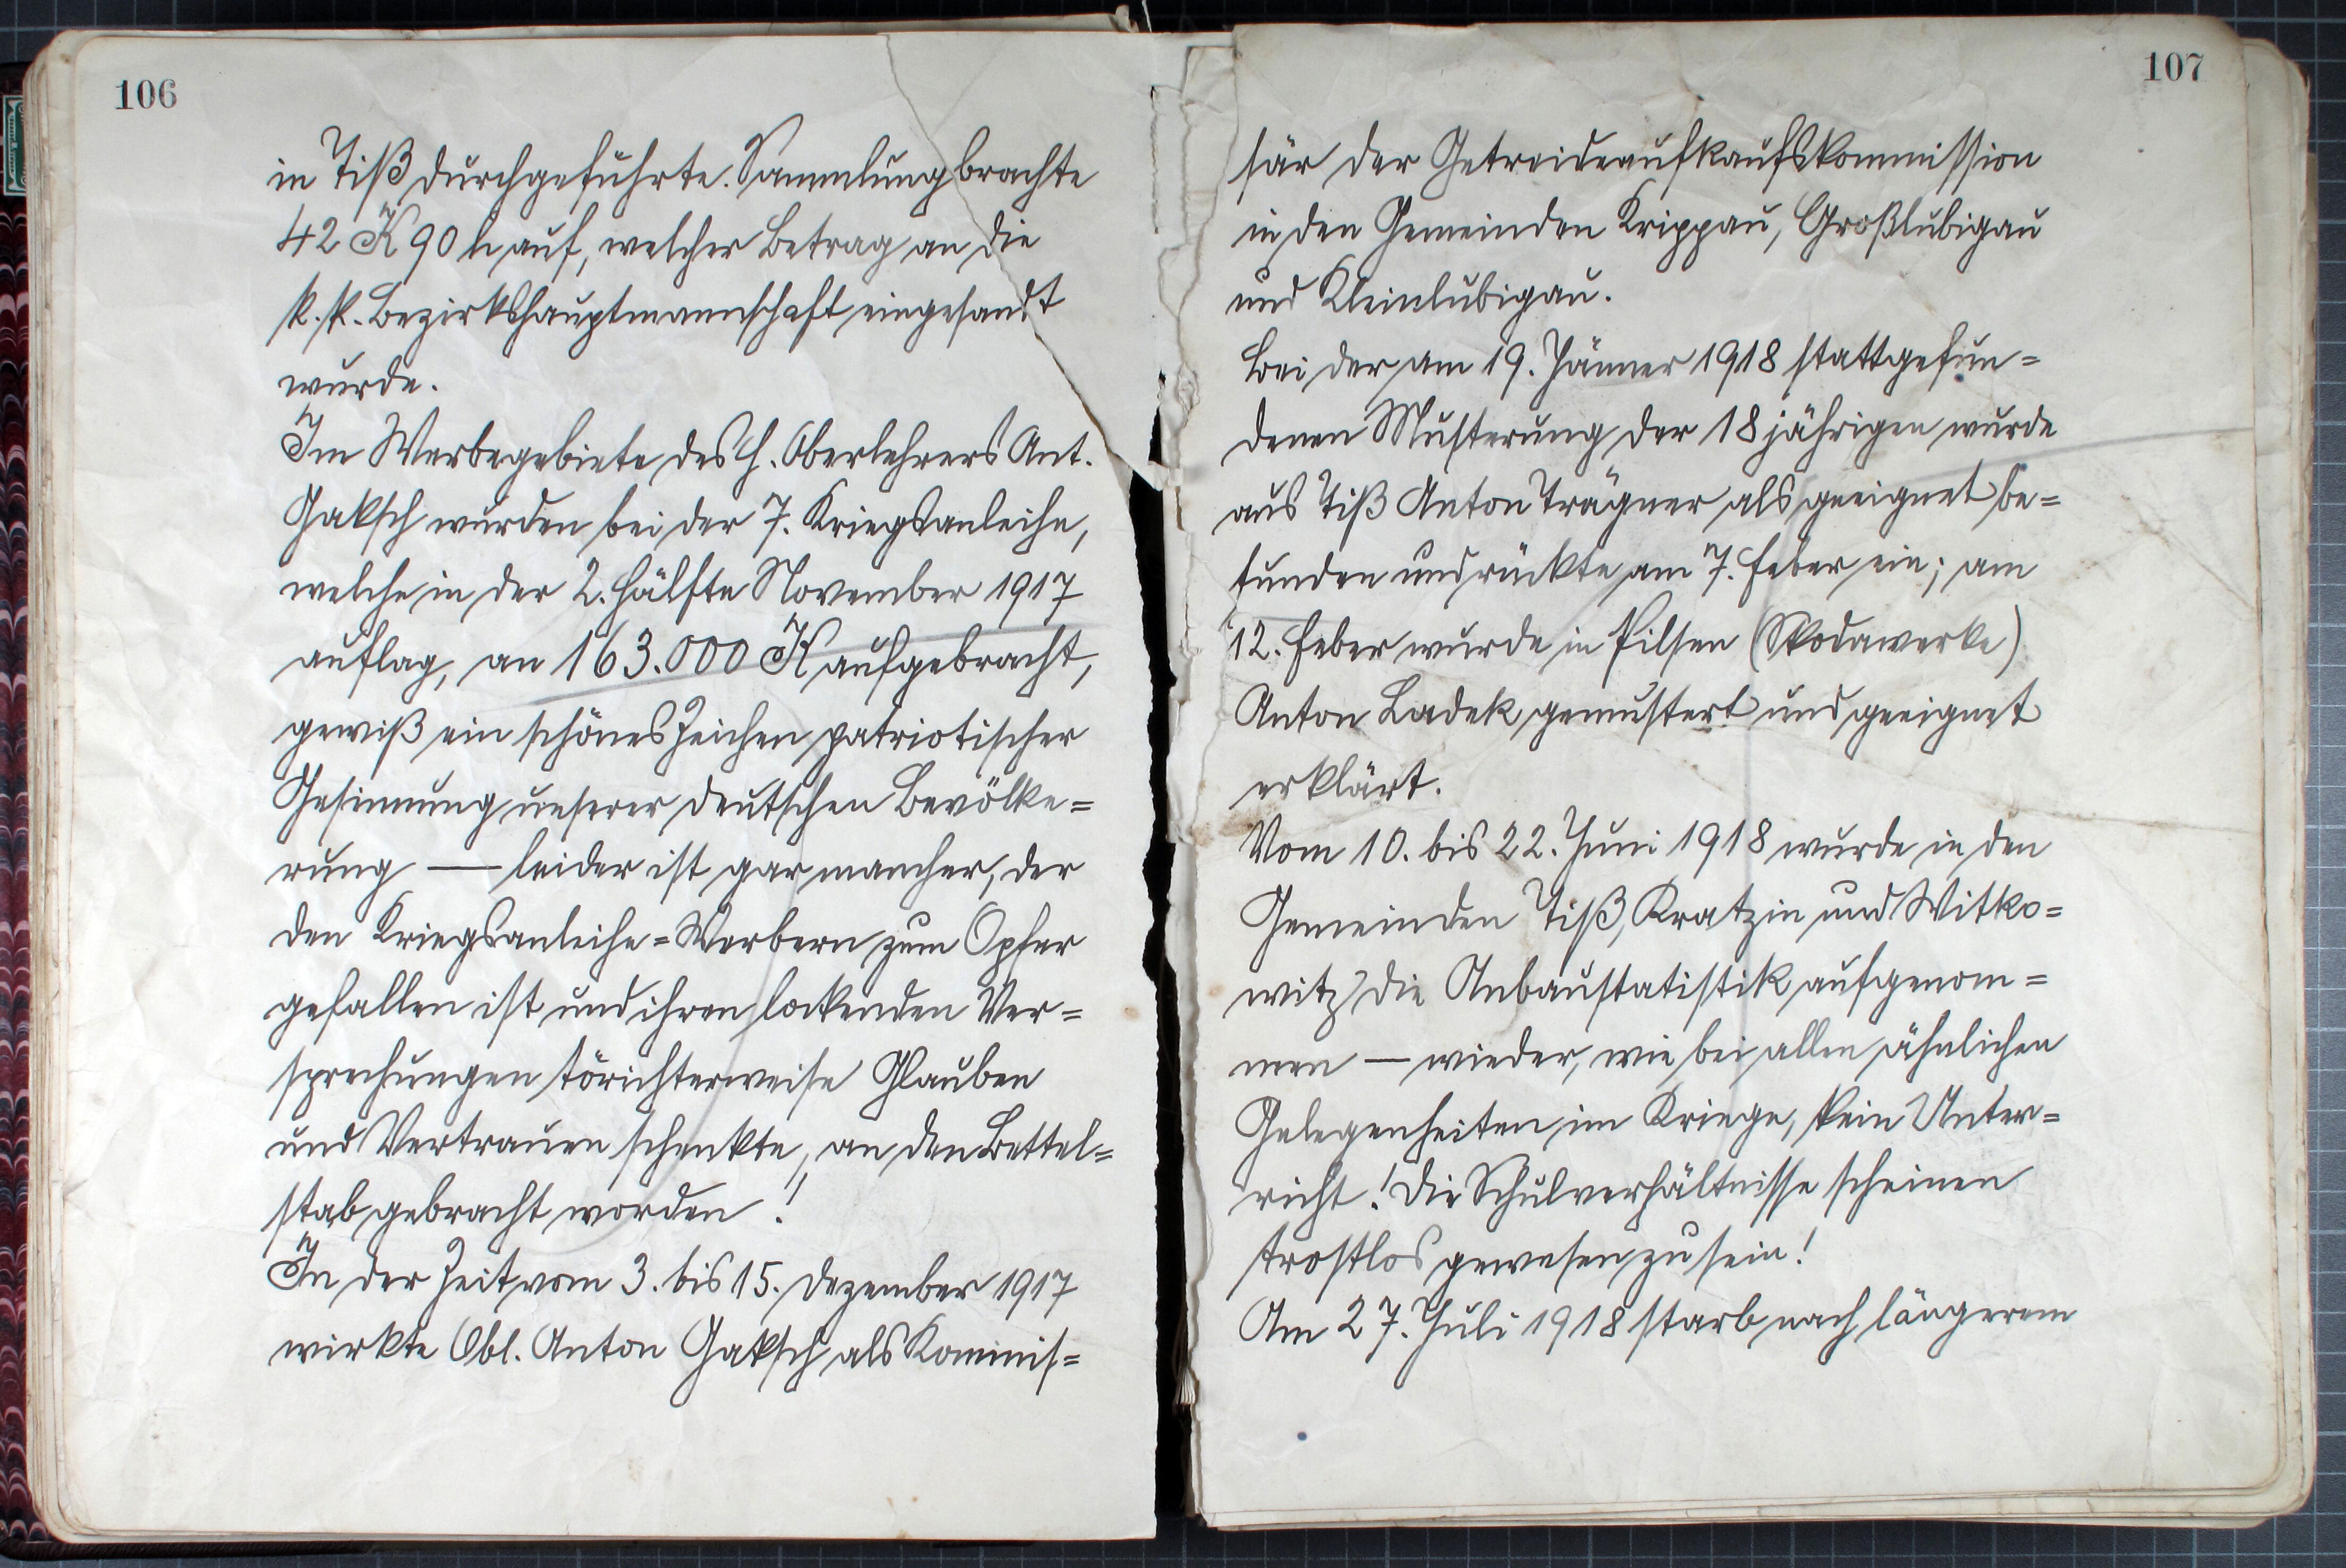 106
in Tiß durchgeführte Sammlung brachte
42 K 90 h auf, welcher Betrag an die
k. k. Bezirkshauptmannschaft eingesandt
wurde.
Im Werbegebiete des H. Oberlehrers Ant.
Gaksch wurden bei der 7. Kriegsanleihe,
welche in der 2. Hälfte November 1917
auflag, an 163.000 K aufgebracht,
gewiß ein schönes Zeichen patriotischer
Gesinnung unserer deutschen Bevölke=
rung — leider ist gar mancher, der
den Kriegsanleihe=Werbern zum Opfer
gefallen ist und ihren lockenden Ver=
sprechungen törichterweise Glauben
und Vertrauen schenkte, an den Bettel=
stab gebracht worden!
In der Zeit vom 3. bis 15. Dezember 1917
wirkte Obl. Anton Gaksch als Kommis=
107
sär der Getreideaufkaufskommission
in den Gemeinden Krippau, Großlubigau
und Kleinlubigau.
Bei der am 19. Jänner 1918 stattgefun=
denen Musterung der 18 jährigen wurde
aus Tiß Anton Trägner als geeignet be=
funden und rückte am 7. Feber ein; am
12. Feber wurde in Pilsen (Skodawerke)
Anton Ladek gemustert und geeignet
erklärt.
Vom 10. bis 22. Juni 1918 wurde in den
Gemeinden Tiß, Kratzin und Witko=
witz die Anbaustatistik aufgenom=
men — wieder, wie bei allen ähnlichen
Gelegenheiten im Kriege, kein Unter=
richt! Die Schulverhältnisse scheinen
trostlos gewesen zu sein!
Am 27. Juli 1918 starb nach längerem